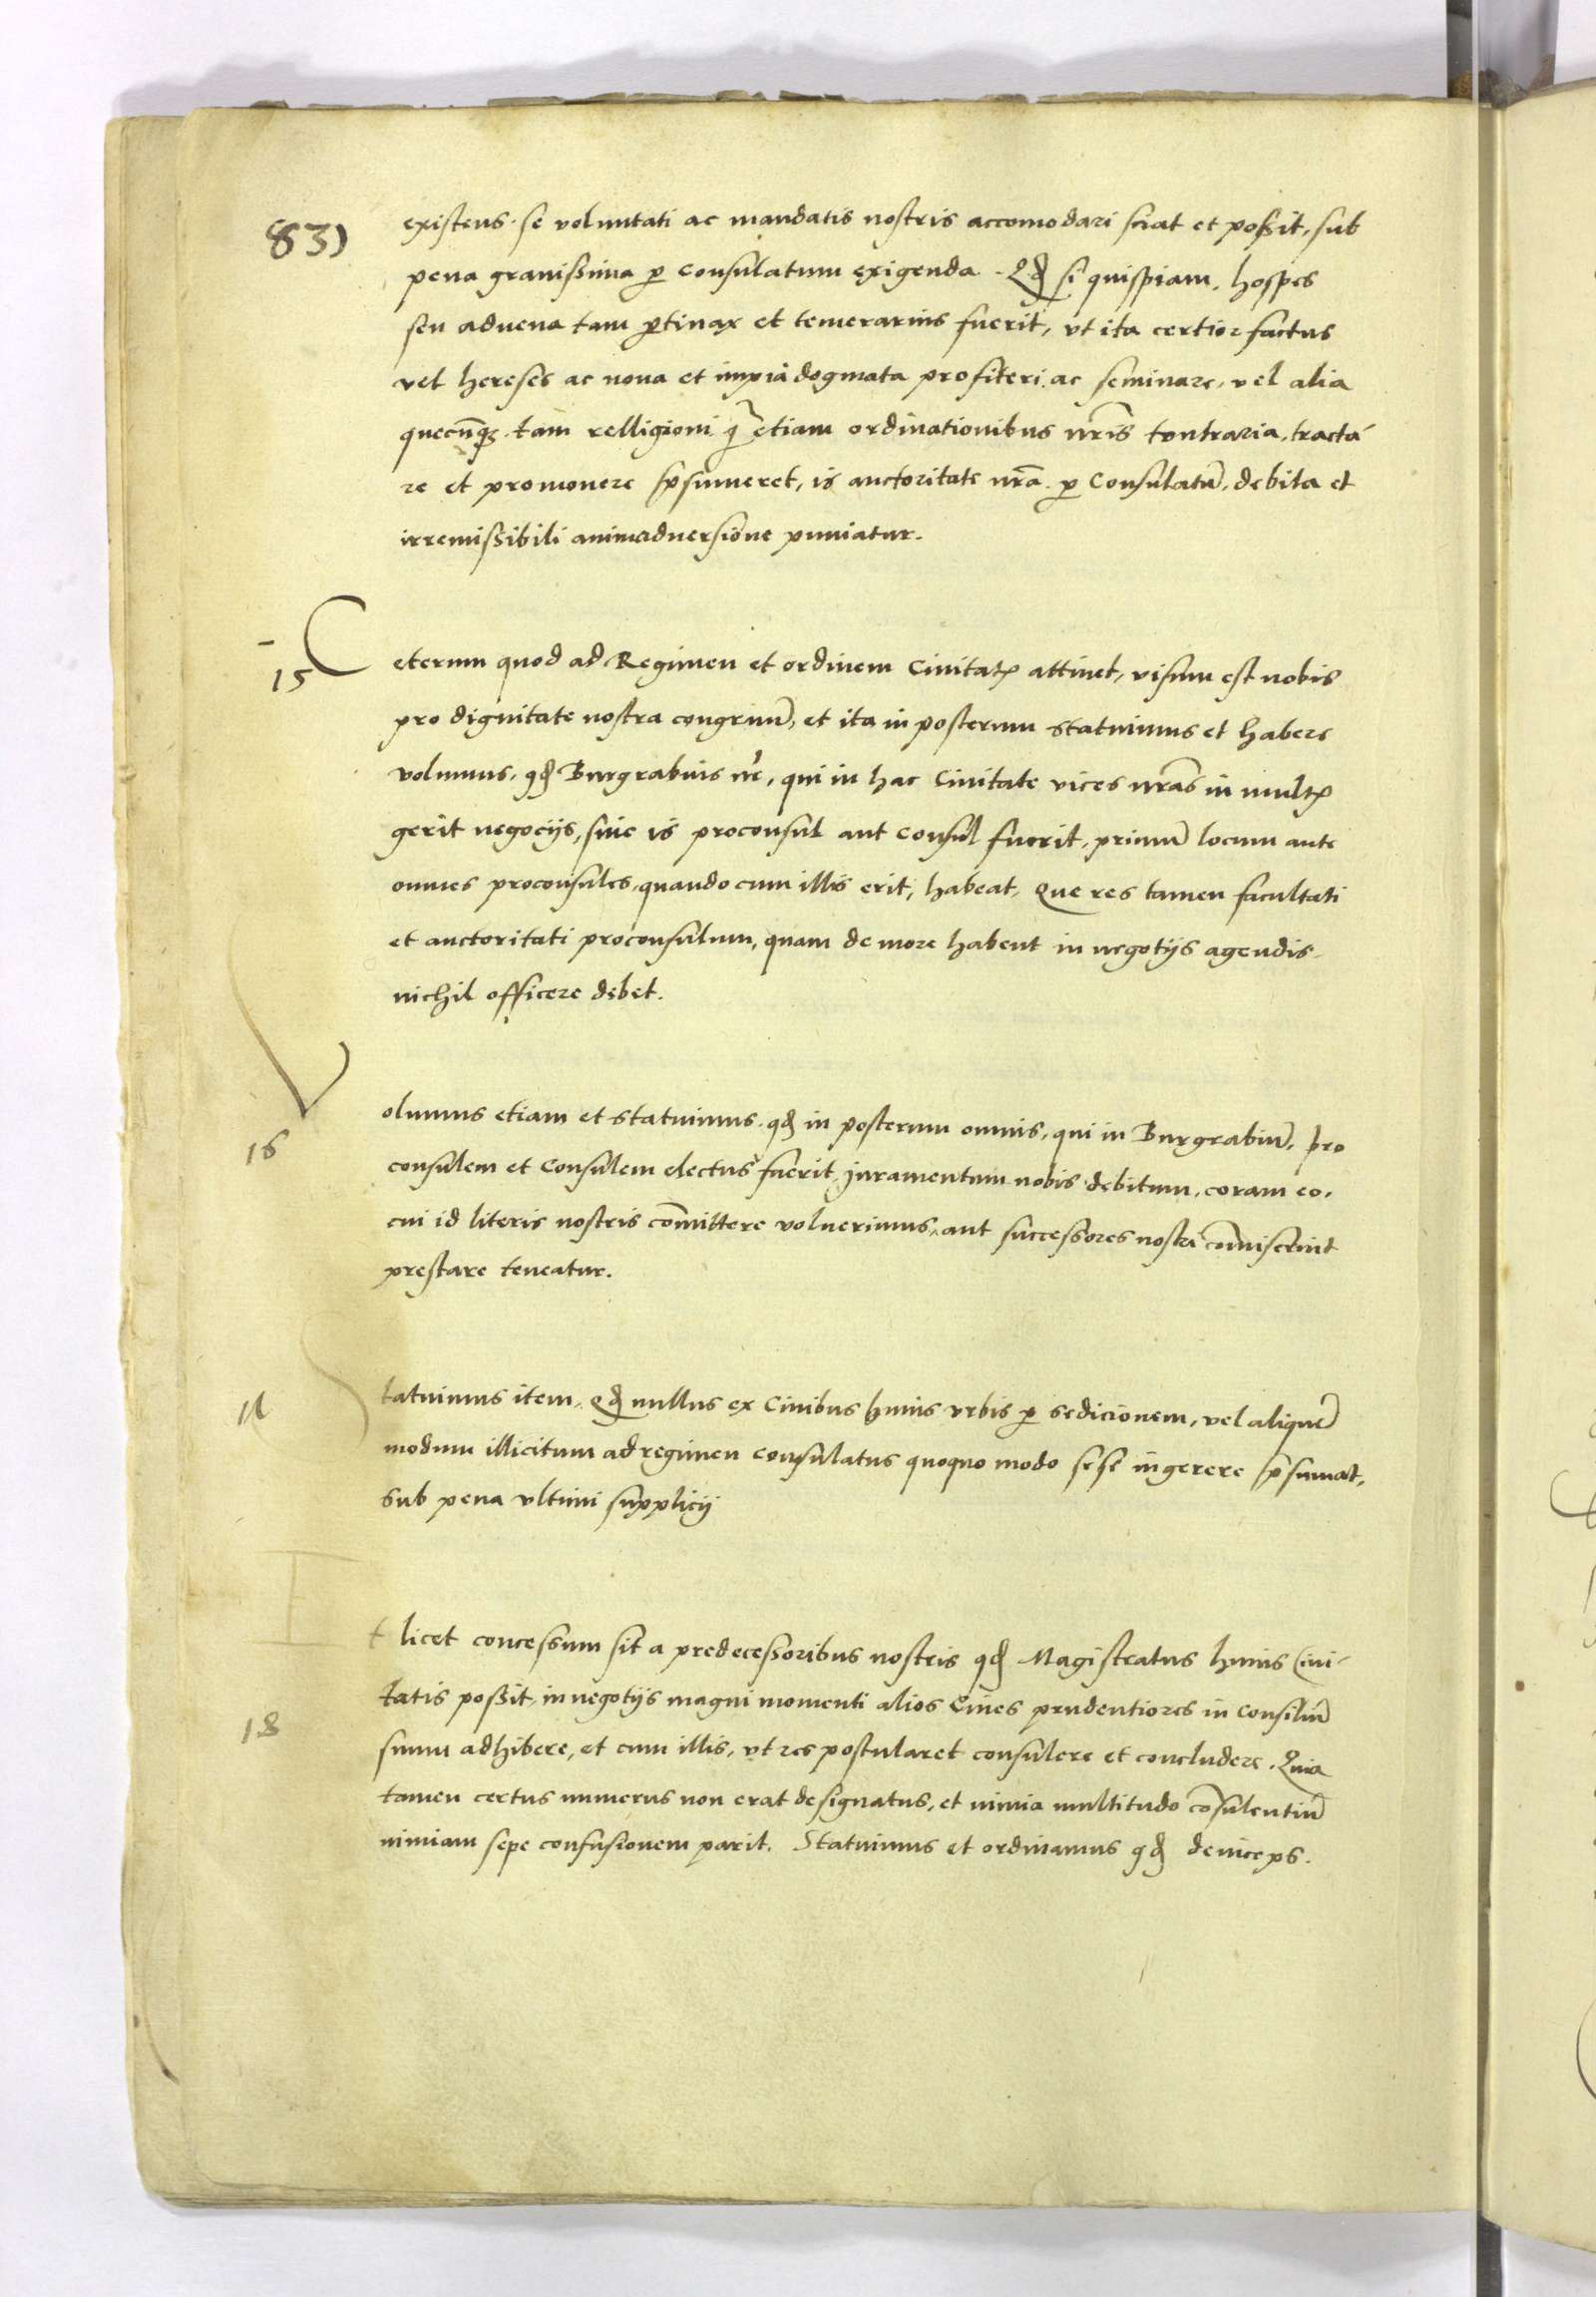 83)
existens se voluntati ac mandatis nostris accomodari sciat et possit, sub
pena grauissima p consulatum exigenda. Qd si quispiam, hospes
seu aduena tam ptinax et temerarius fuerit, vt ita certior factus
vel hereses ac noua et impia dogmata profiteri ac seminare, vel alia
quecunqz tam relligioni q̃ etiam ordinationibus nr̃is contraria, tracta-
re et promouere p̃sumeret, is auctoritate nr̃a p Consulatũ, debita et
irremissibili animaduersione puniatur.
15 Ceterum quod ad Regimen et ordinem Ciuitatis attinet, visum est nobis
pro dignitate nostra congruũ, et ita in posterum statuimus et habere
volumus, qd Burgrabius nr̃, qui in hac Ciuitate vices nr̃as in multis
gerit negocijs, siue is proconsul aut consul fuerit, primũ locum ante
omnes proconsules, quando cum illis erit, habeat, Que res tamen facultati
et auctoritati proconsulum, quam de more habent in negotijs agendis
nichil officere debet.
16 Volumus etiam et statuimus qd in posterum omnis, qui in Burgrabiũ, pro
consulem et Consulem electus fuerit, juramentum nobis debitum, coram eo,
cui id literis nostris com̃ittere voluerimus, aut successores nostri com̃iserint
prestare teneatur.
Statuimus item, qd nullus ex Ciuibus huius vrbis p sedicionem, vel aliquẽ
modum illicitum ad regimen consulatus quoquo modo sese ingerere p̃sumat,
sub pena vltimi supplicij
Et licet concessum sit a predecessoribus nostris qd Magistratus huius Ciui-
18 tatis possit, in negotijs magni momenti alios Ciues prudentiores in consiliũ
suum adhibere, et cum illis, vt res postularet consulere et concludere. Quia
tamen certus numerus non erat designatus, et nimia multitudo cõsulentiũ
nimiam sepe confusionem parit. Statuimus et ordinamus qd deinceps.